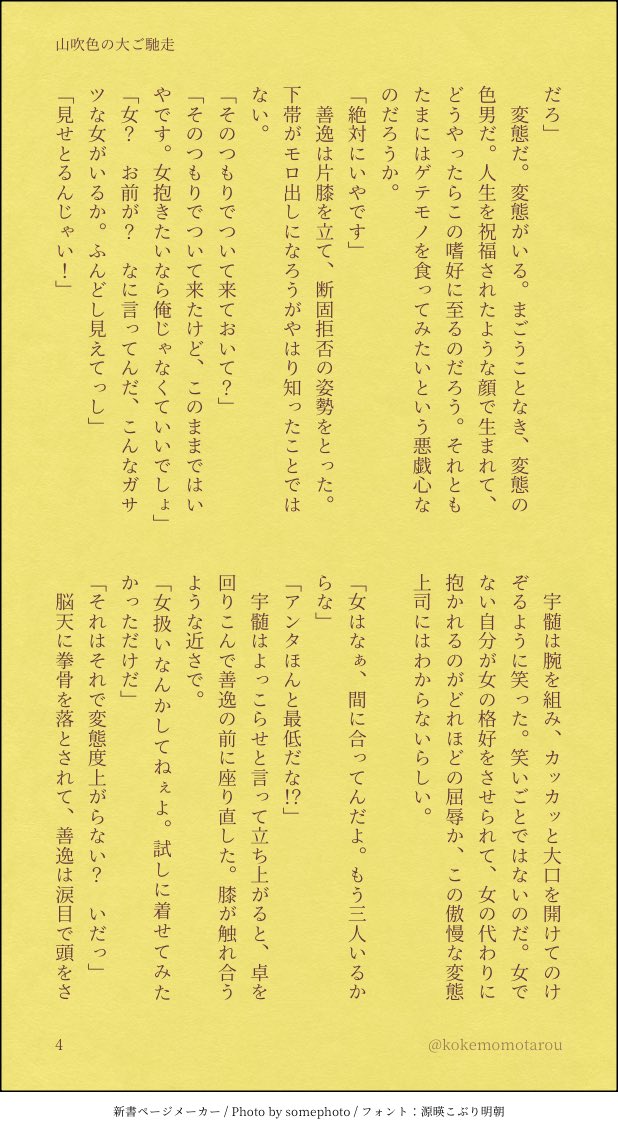 山吹色の大ご馳走
だろ」
　変態だ。変態がいる。まごうことなき、変態の
色男だ。人生を祝福されたような顔で生まれて、
どうやったらこの嗜好に至るのだろう。それとも
たまにはゲテモノを食ってみたいという悪戯心な
のだろうか。
「絶対にいやです」
　善逸は片膝を立て、断固拒否の姿勢をとった。
下帯がモロ出しになろうがやはり知ったことでは
ない。
「そのつもりでついて来ておいて？」
「そのつもりでついて来たけど、このままではい
やです。女抱きたいなら俺じゃなくていいでしょ」
「女？　お前が？　なに言ってんだ、こんなガサ
ツな女がいるか。ふんどし見えてっし」
「見せとるんじゃい！」
　宇髄は腕を組み、カッカッと大口を開けてのけ
ぞるように笑った。笑いごとではないのだ。女で
ない自分が女の格好をさせられて、女の代わりに
抱かれるのがどれほどの屈辱か、この傲慢な変態
上司にはわからないらしい。
「女はなぁ、間に合ってんだよ。もう三人いるか
らな」
「アンタほんと最低だな!?」
　宇髄はよっこらせと言って立ち上がると、卓を
回りこんで善逸の前に座り直した。膝が触れ合う
ような近さで。
「女扱いなんかしてねぇよ。試しに着せてみた
かっただけだ」
「それはそれで変態度上がらない？　いだっ」
　脳天に拳骨を落とされて、善逸は涙目で頭をさ
4
@kokemomotarou
新書ページメーカー / Photo by somephoto / フォント：源暎こぶり明朝